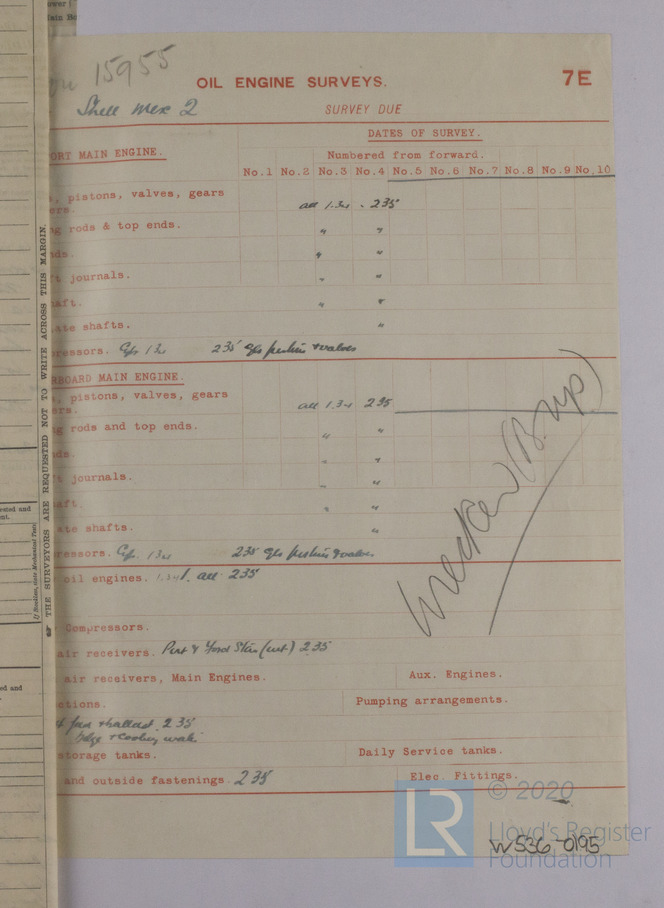 15955
OIL ENGINE SURVEYS.
7E
Shell Mex 2
SURVEY DUE
DATES OF SURVEY.
ORT MAIN ENGINE.
Numbered from forward.
No.1 No.2 No.3 No.4 No.5 No.6 No.7 No.8 No.9 No.10
, pistons, valves, gears
ers.
all 1.34 . 2.35
g rods & top ends. " "
ds. " "
t journals. " "
aft. " "
ate shafts. "
ressors. 1.34 2.35 & valves
RBOARD MAIN ENGINE.
, pistons, valves, gears
ers.
all 1.34 2.35
g rods and top ends. " "
ds. " "
t journals. " "
aft. " "
ate shafts. "
ressors. 1.34 2.35 & valves
oil engines. 1.34 all 2.35
Compressors.
air receivers. Port & Stbd 2.35
air receivers, Main Engines.
Aux. Engines.
ations.
Pumping arrangements.
& ballast 2.35
& cooling water
storage tanks.
Daily Service tanks.
and outside fastenings. 2.35
Elec. Fittings.
THE SURVEYORS ARE REQUESTED NOT TO WRITE ACROSS THIS MARGIN.
© 2020
LR
Lloyd's Register
Foundation
W536-0195